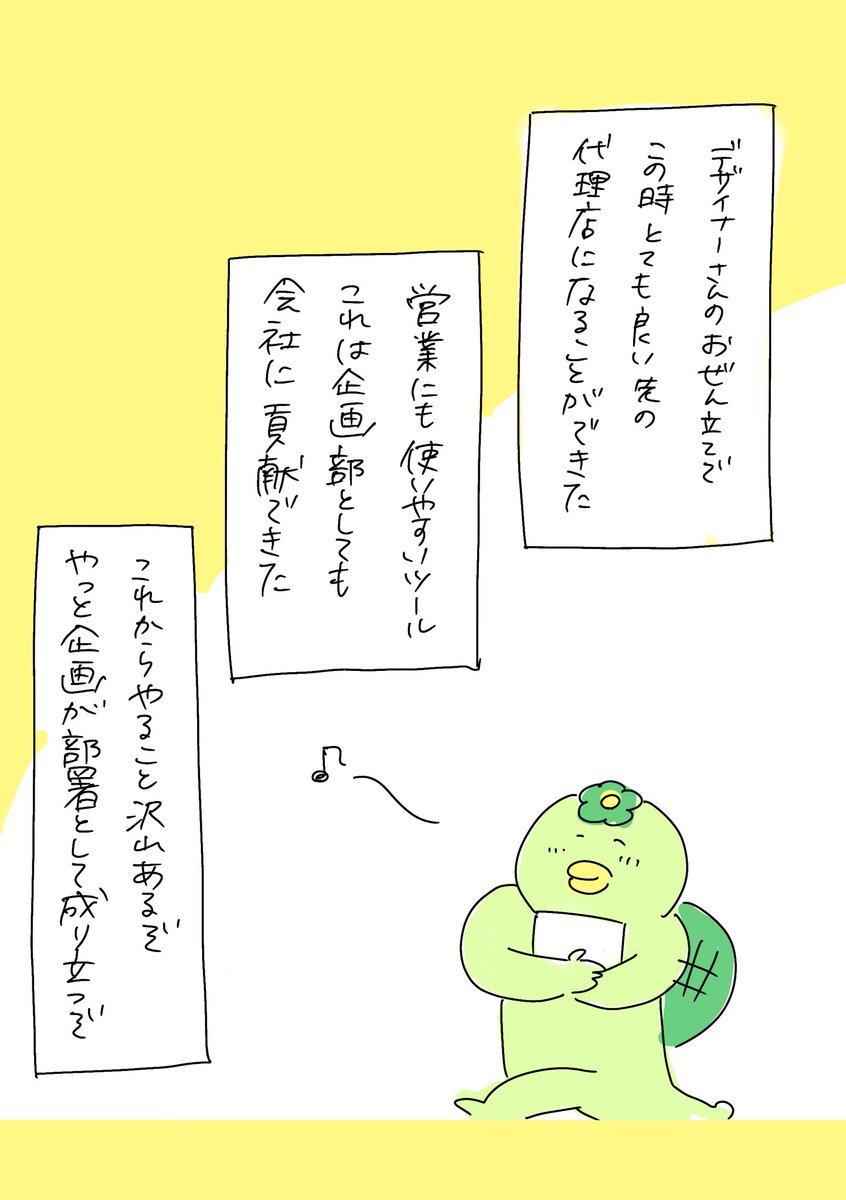 デザイナーさんのおぜん立てで
この時とても良い先の
代理店になることができた
営業にも使いやすいツール
これは企画部としても
会社に貢献できた
これからやること沢山あるぞ
やっと企画が部署として成り立つぞ